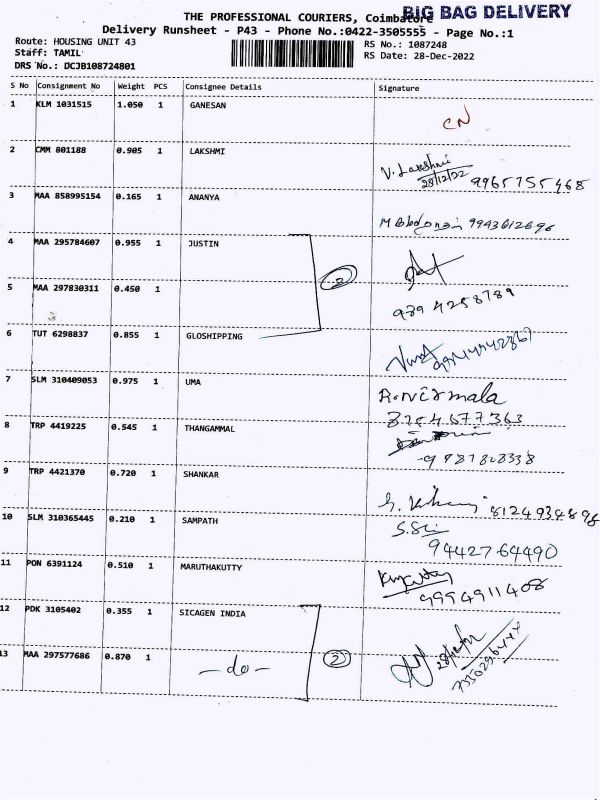 BIG BAG DELIVERY
THE PROFESSIONAL COURIERS, Coimbatore
Delivery Runsheet - P43 - Phone No.:0422-3505555 - Page No.:1
Route: HOUSING UNIT 43
Staff: TAMIL
DRS No.: DCJB108724801
RS No.: 1087248
RS Date: 28-Dec-2022
S No Consignment No Weight PCS Consignee Details Signature
1 KLM 1031515 1.050 1 GANESAN
CN
2 CMM 801188 0.905 1 LAKSHMI
V. Lakshmi
28/12/22 9965755468
3 MAA 858995154 0.165 1 ANANYA
9943612696
4 MAA 295784607 0.955 1 JUSTIN
2
5 MAA 297830311 0.450 1
9894258789
6 TUT 6298837 0.855 1 GLOSHIPPING
7 SLM 310409053 0.975 1 UMA
R. Nirmala
8254677363
8 TRP 4419225 0.545 1 THANGAMMAL
9 TRP 4421370 0.720 1 SHANKAR
8124934898
10 SLM 310365445 0.210 1 SAMPATH
9442764490
11 PON 6391124 0.510 1 MARUTHAKUTTY
9994911408
12 PDK 3105402 0.355 1 SICAGEN INDIA
13 MAA 297577686 0.870 1 -do-
2